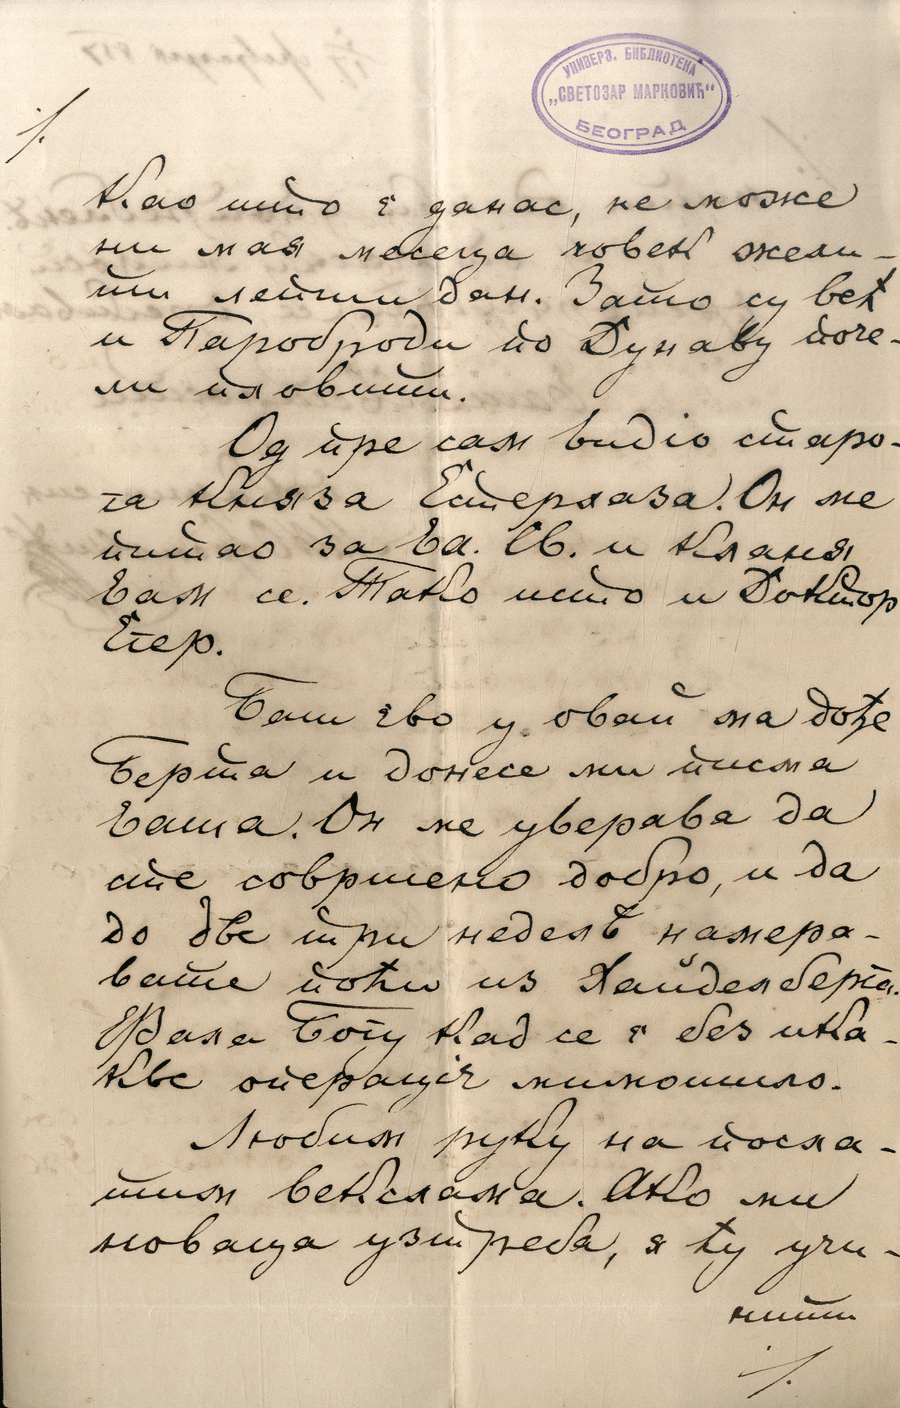 УНИВЕРЗ. БИБЛИОТЕКА
„СВЕТОЗАР МАРКОВИЋ“
БЕОГРАД
Као што є данас, не може
ни мая месеца човек жели-
ти лепши дан. Зато су већ
и Пароброди по Дунаву поче-
ли пловити.
Од пре сам видіо старо-
га Княза Естерхаза. Он ме
питао за Ва. Св. и кланя
Вам се. Тако исто и Доктор
Егер.
Баш ево у овай ма дође
Берта и донесе ми писма
Ваша. Он ме уверава да
сте совршено добро, и да
до две три неделѣ намера-
вате поћи из Хайделберга.
Фала Богу кад се є без ика-
кве операціє мимошло.
Любим руку на посла-
тим векслама. Ако ми
новаца узтреба, я ћу учи-
нити